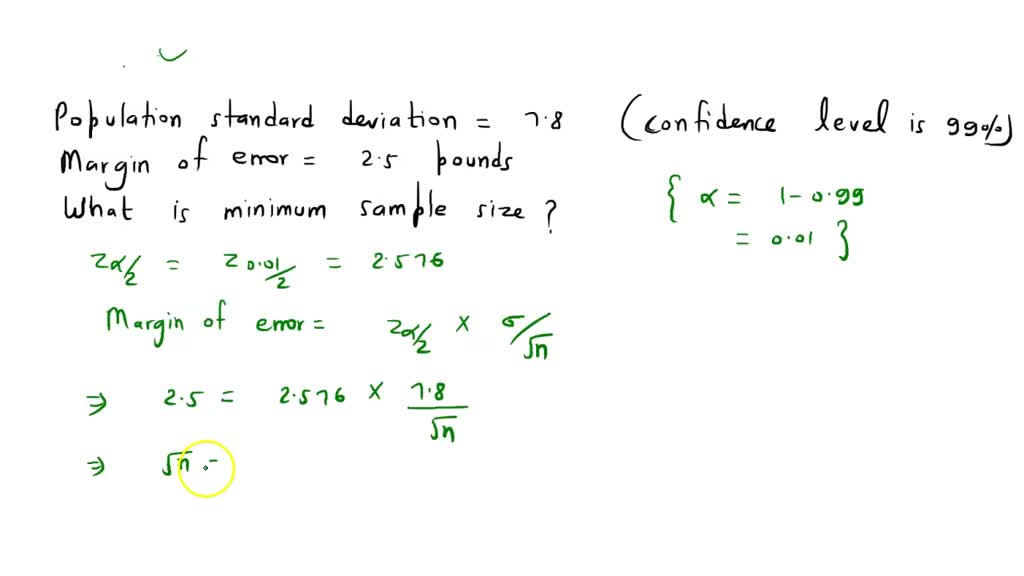 Population standard deviation = 7.8 (confidence level is 99%)
Margin of error = 2.5 pounds
What is minimum sample size?
{ α = 1-0.99
= 0.01 }
zα/2 = z0.01/2 = 2.576
Margin of error = zα/2 × σ/√n
⇒ 2.5 = 2.576 × 7.8/√n
⇒ √n =